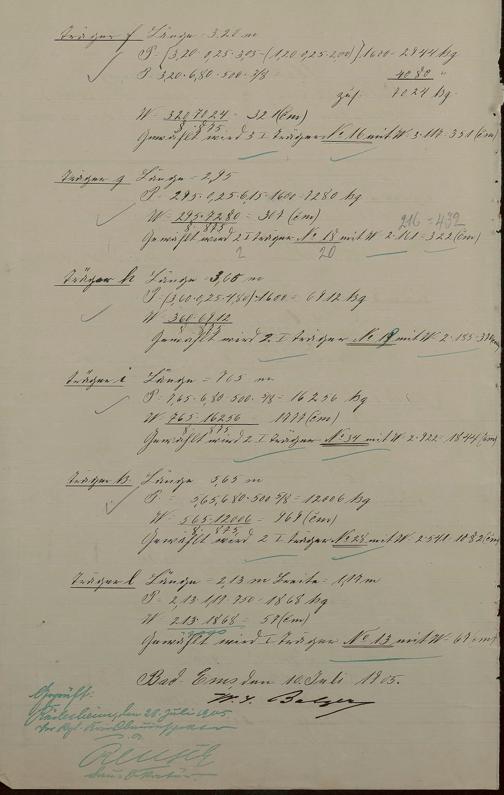 Träger f Länge = 3,20 m
P = (3,20 · 0,25 · 3,05 - (1,20 · 0,25 · 2,00)) · 1600 = 2944 kg
P = 3,20 · 6,80 · 500 · 3/8 = 4080 "
zus. 7024 kg.
W = 320 · 7024 = 321 (cm)
8 · 875
Gewählt wird 3 I Träger No 16 mit W = 3 · 117 = 351 (cm)
Träger g Länge = 2,95
P = 2,95 · 0,25 · 6,15 · 1600 = 7280 kg
W = 295 · 7280 = 307 (cm)
8 · 875
216 = 432
Gewählt wird 2 I Träger No 18 mit W = 2 · 161 = 322 (cm)
2 20
Träger h Länge = 3,60 m
P = (3,60 · 0,25 · 4,80) · 1600 = 6912 kg
W = 360 · 6912
8 · 875
Gewählt wird 2 I Träger No 19 mit W = 2 · 185 =
Träger i Länge = 7,65 m
P = 7,65 · 6,80 · 500 · 5/8 = 16256 kg
W = 765 · 16256 = 1777 (cm)
8 · 875
Gewählt wird 2 I Träger No 34 mit W = 2 · 922 = 1844 (cm)
Träger k Länge = 5,65 m
P = 5,65 · 6,80 · 500 · 5/8 = 12006 kg
W = 565 · 12006 = 969 (cm)
8 · 875
Gewählt wird 2 I Träger No 28 mit W = 2 · 541 = 1082 (cm)
Träger l Länge = 2,13 m Breite = 1,17 m
P = 2,13 · 1,17 · 750 = 1868 kg
W = 213 · 1868 = 57 (cm)
Gewählt wird I Träger No 13 mit W = 67 cm
Bad Ems, den 10. Juli 1905.
W. Balzer
Geprüft:
Rüdesheim, den 28. Juli 1905
Der Kgl.